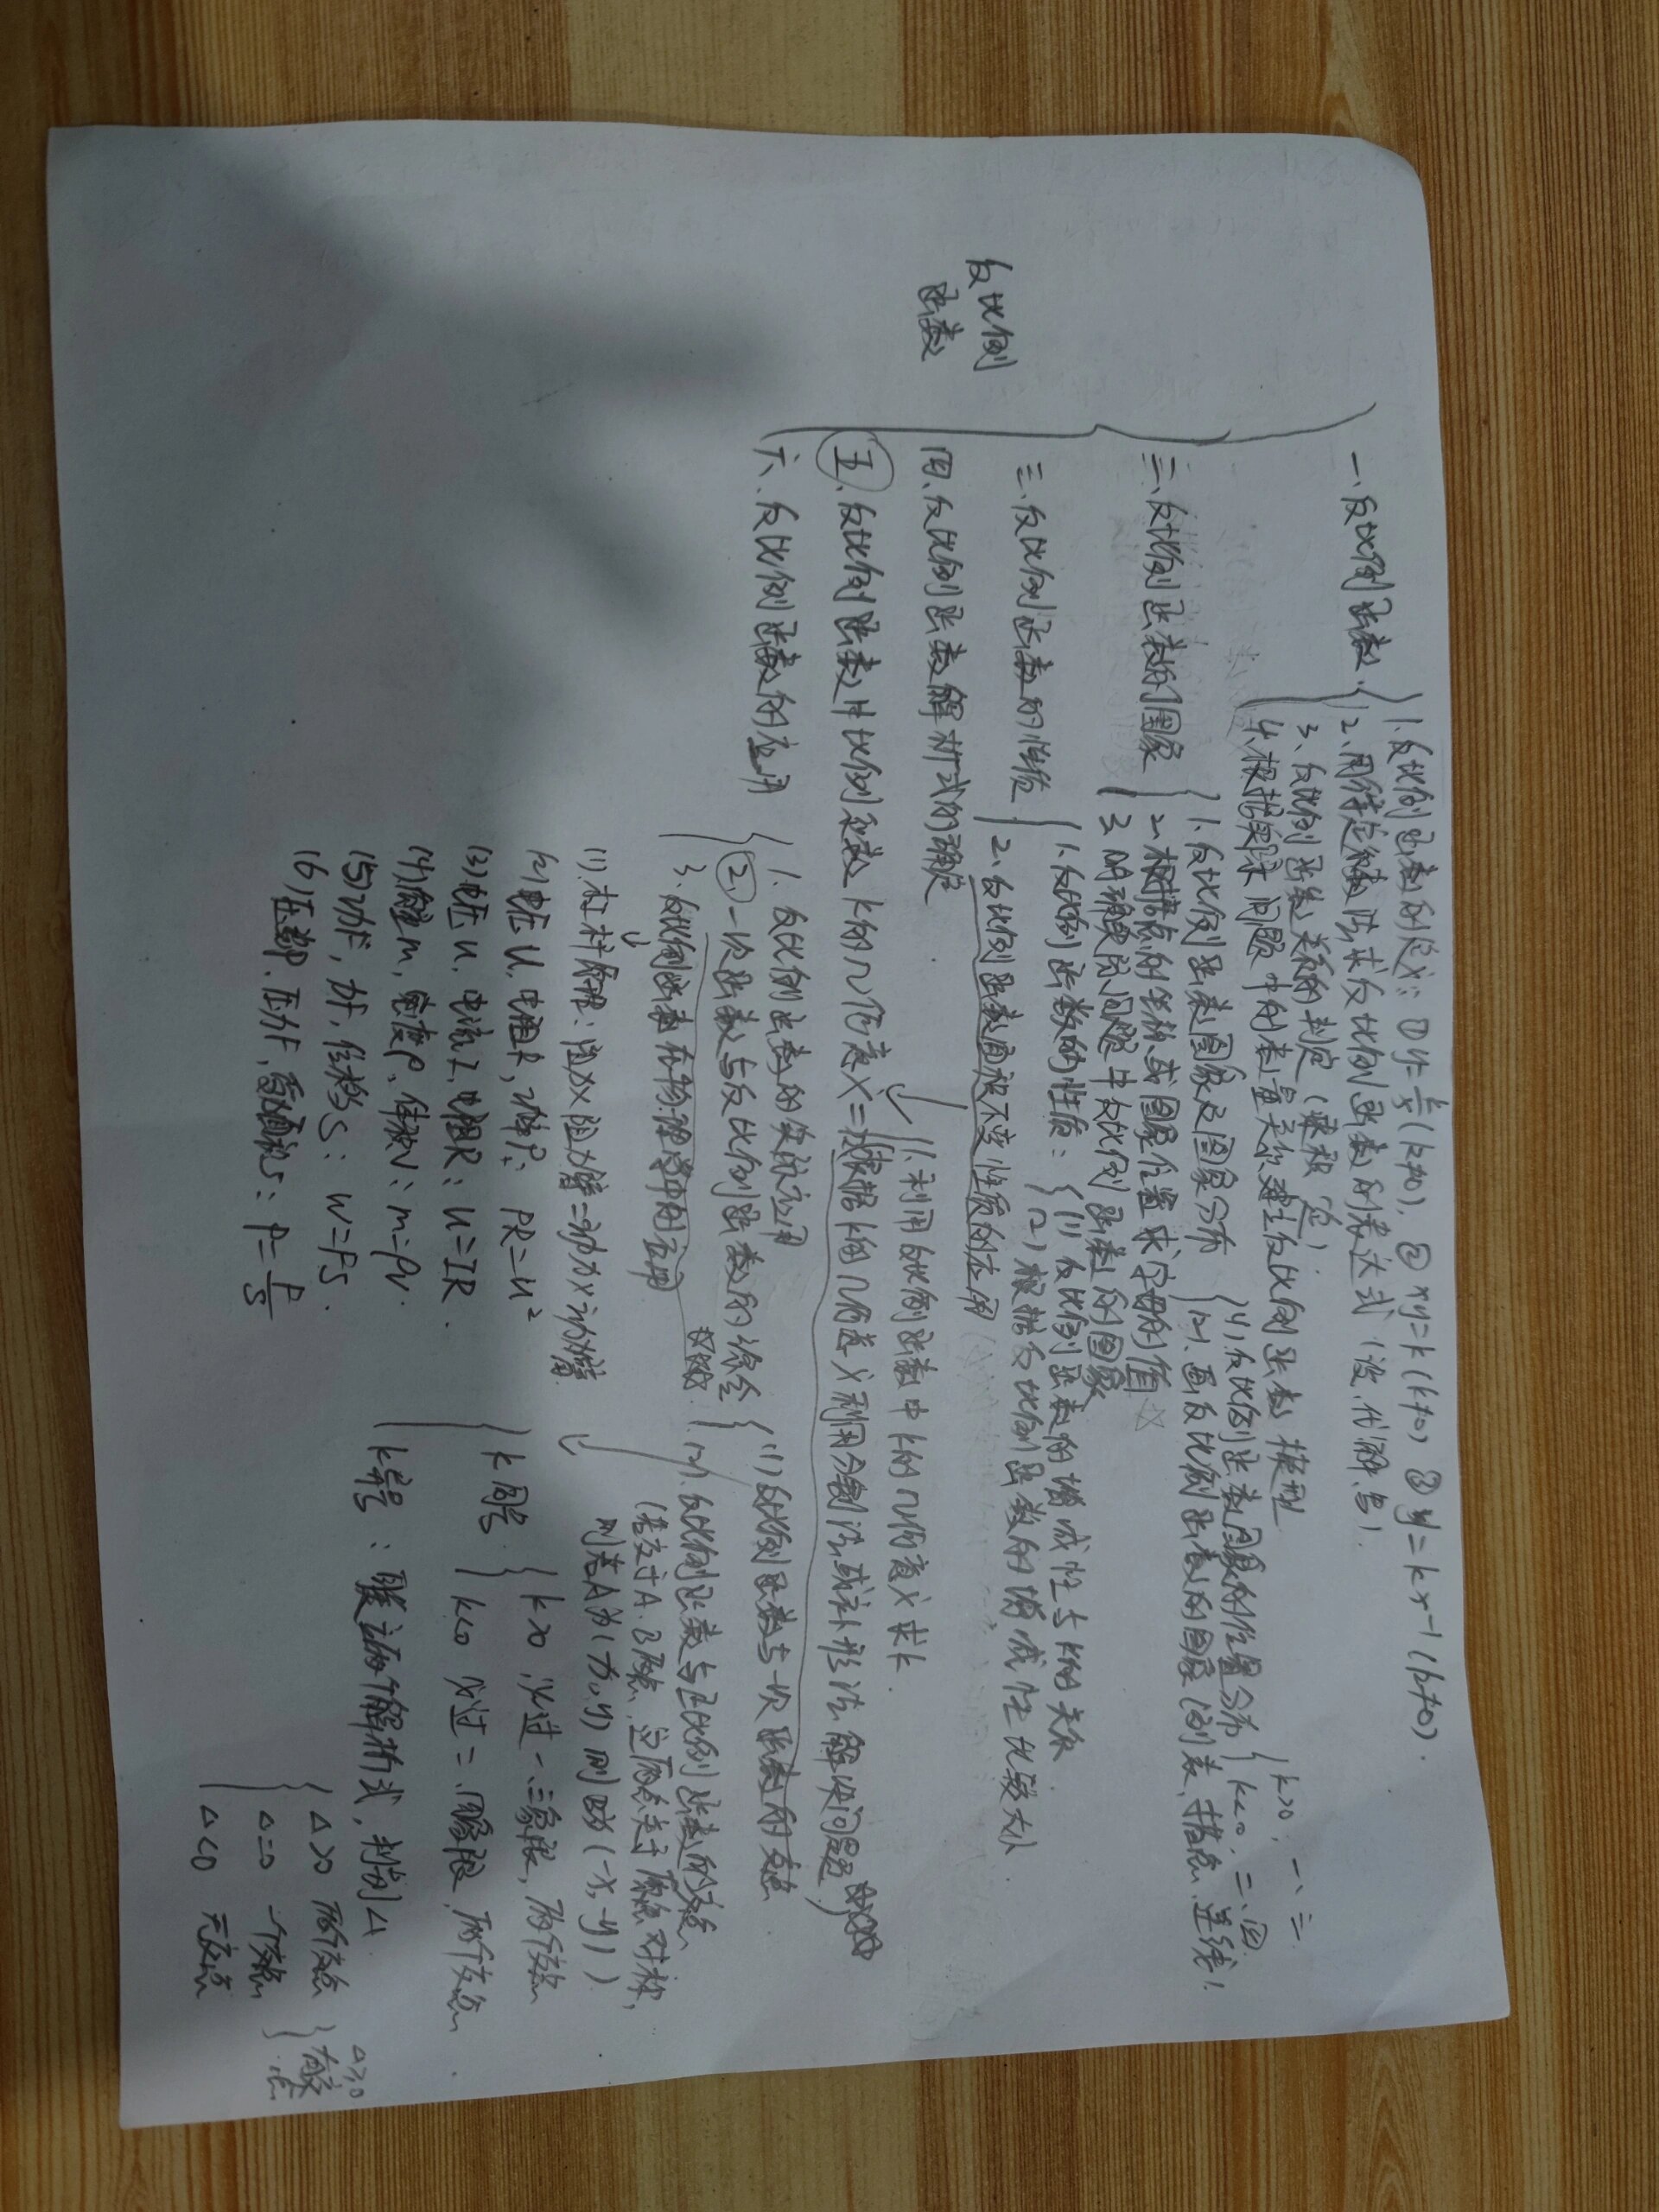 反比例
函数
一、反比例函数
1.反比例函数的定义:①y=k/x(k≠0),②xy=k(k≠0)③y=kx-1(k≠0).
2.用待定系数法求反比例函数的表达式(设、代、解、写)
3、反比例函数关系的判定(乘积一定)
4.根据实际问题中的数量关系建立反比例函数模型
二、反比例函数的图象
1.反比例函数图象及图象分布
(1)反比例函数图象的位置分布
k>0,一、三
k<0,二、四
(2)、画反比例函数的图象(列表、描点、连线)
2.根据点的坐标或图象位置求字母的值
3.明确实际问题中反比例函数的图象
三、反比例函数的性质
1.反比例函数的性质:
(1)反比例函数的增减性与k的关系
(2)根据反比例函数的增减性比较大小
2、反比例函数面积不变性质的应用
四、反比例函数解析式的确定
五、反比例函数中比例系数k的几何意义
1.利用反比例函数中k的几何意义求k
二根据k的几何意义利用分割法或补形法解决问题
六、反比例函数的应用
1.反比例函数的实际应用
2.一次函数与反比例函数的综合
(1)反比例函数与一次函数的交点
(2).反比例函数与正比例函数的交点
(若交于A.B两点,这两点关于原点对称,
则若A为(x,y)则B为(-x,-y))
k同号
k>0,必过一、三象限,两个交点
k<0必过二、四象限,两个交点
k异号:联立两个解析式,判别△
△>0 两个交点
△=0 一个交点
△<0 无交点
△≥0
有交点
3.反比例函数在物理学中的应用
(1)杠杆原理:阻力×阻力臂=动力×动力臂
(2)电压U,电阻R,功率P:PR=U²
(3)电压U,电流I,电阻R:U=IR
(4)质量m,密度ρ,体积V:m=ρV.
(5)功W,力F,位移S:W=FS.
(6)压强P.压力F,受面积S:P=F/S